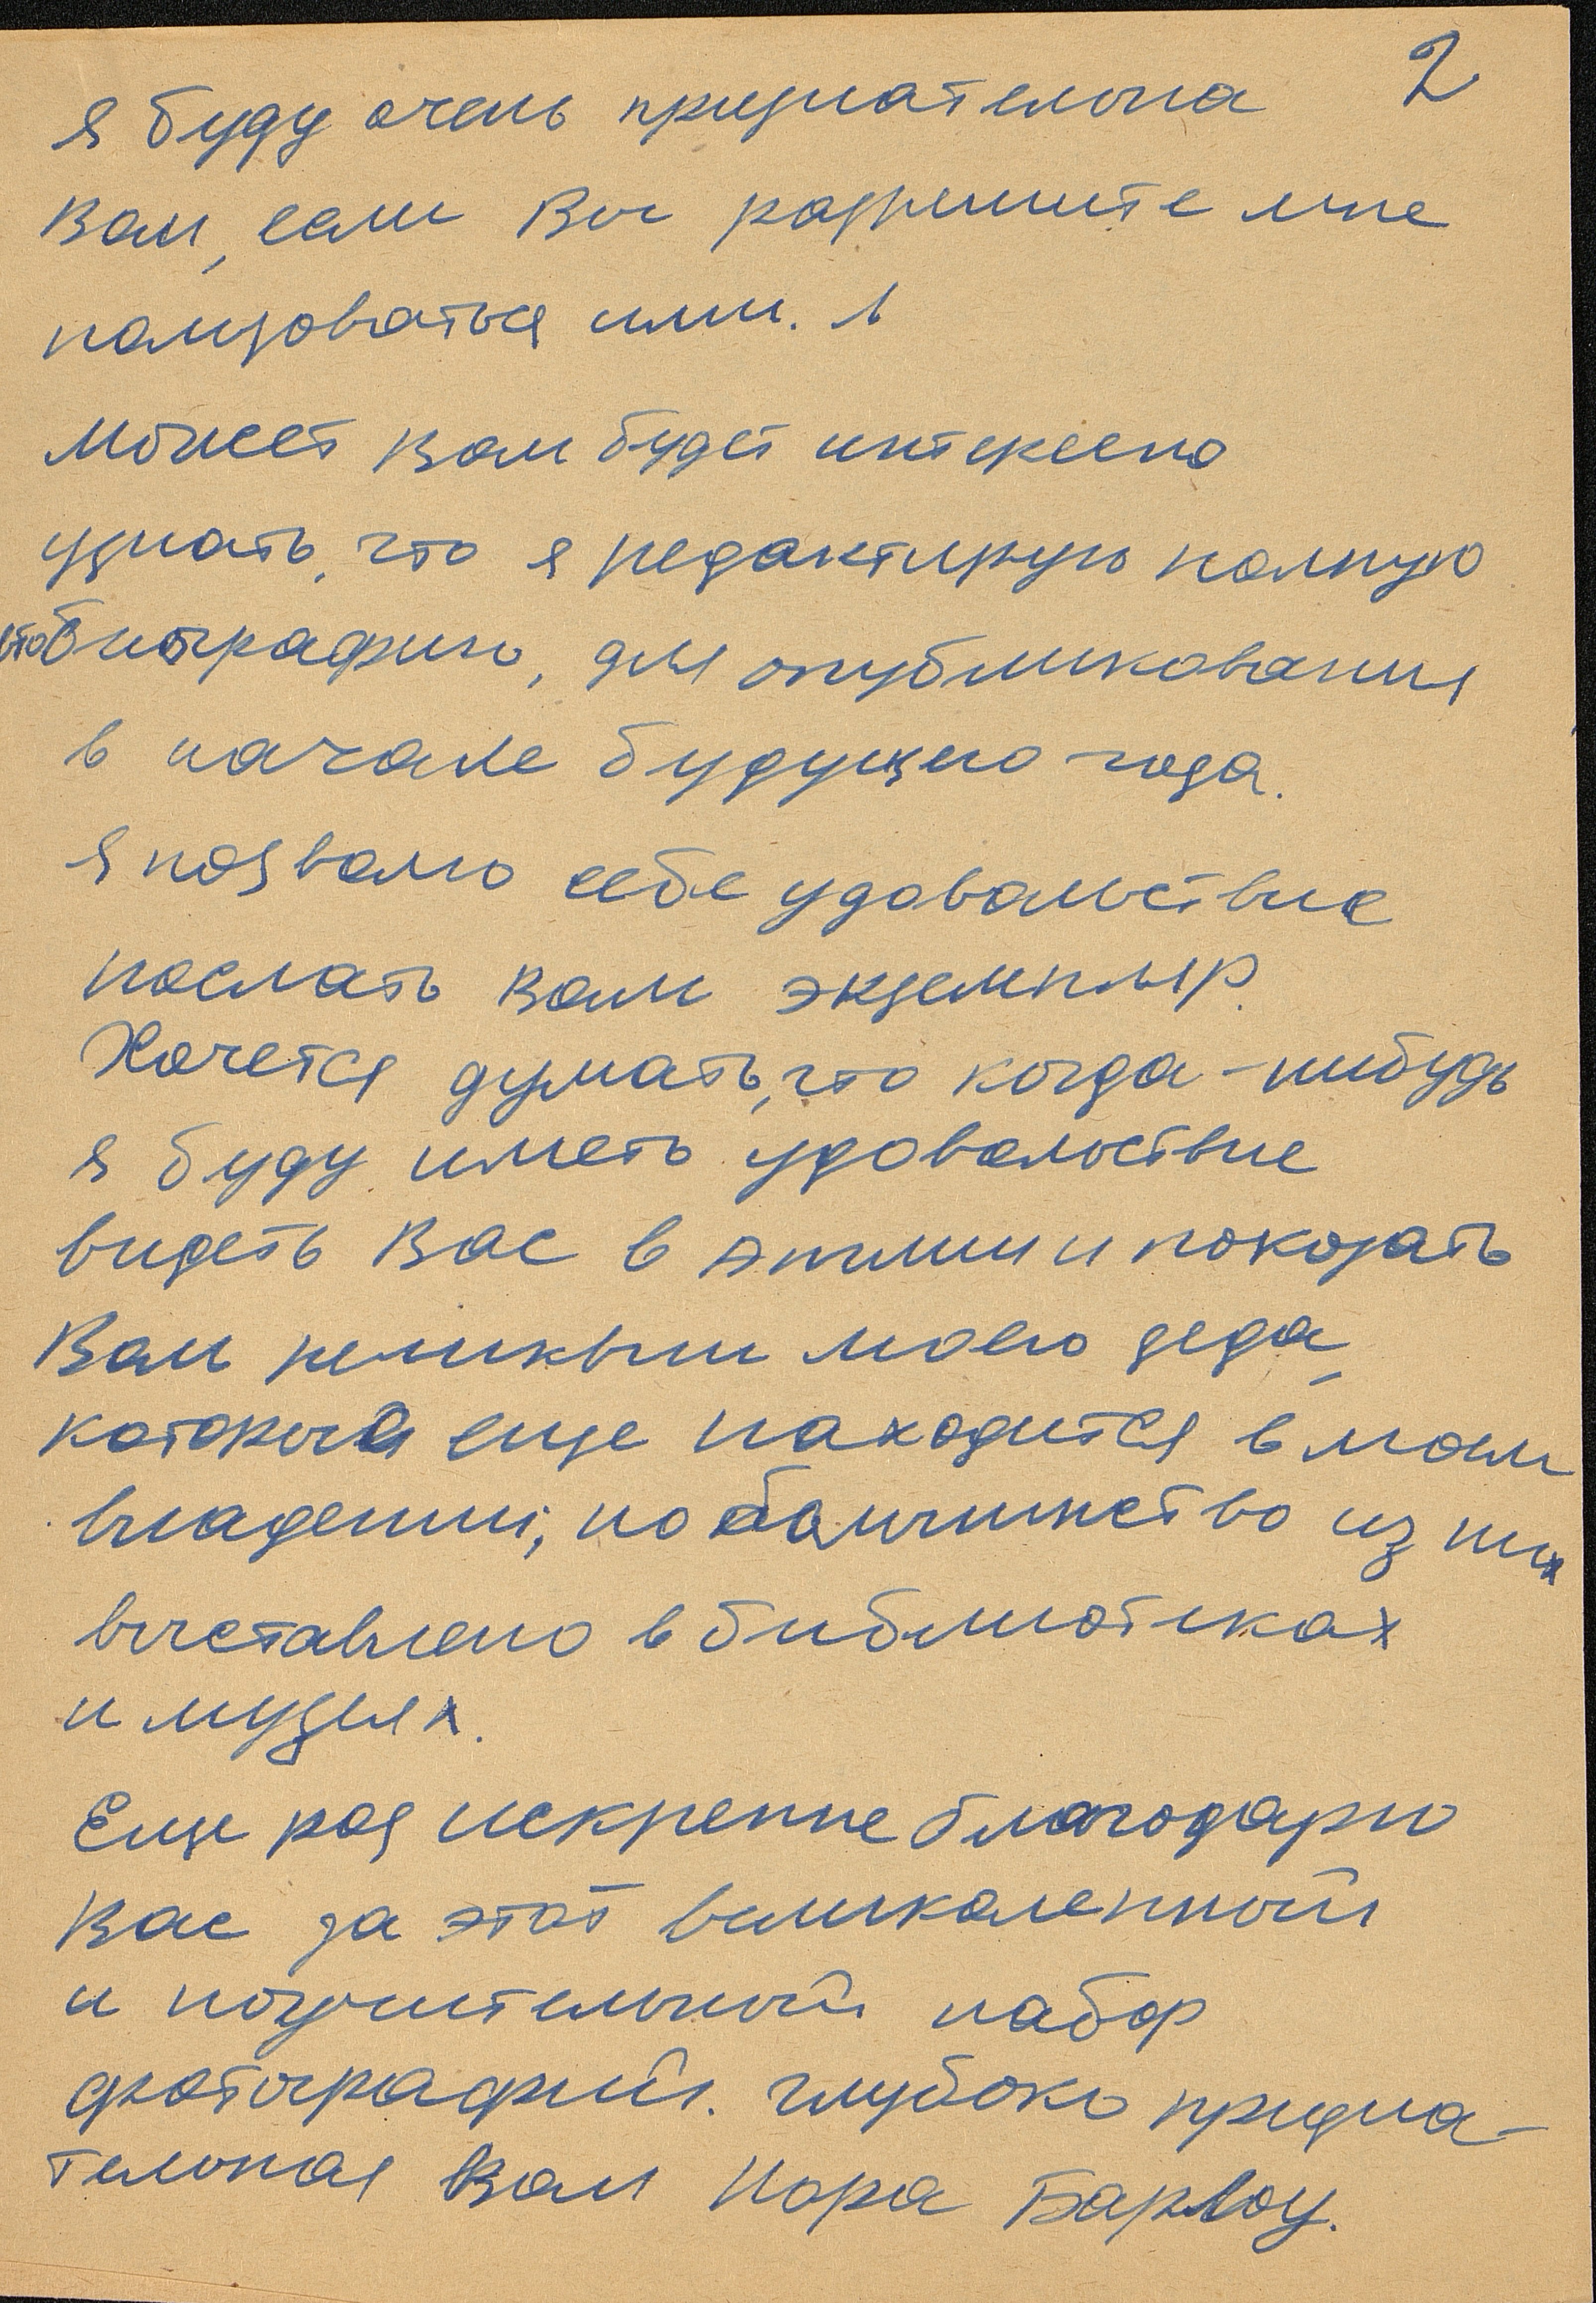 2
Я буду очень признательна
Вам, если Вы разрешите мне
пользоваться ими.
Может Вам будет интересно
узнать, что я редактирую полную
автобиографию, для опубликования
в начале будущего года.
Я позволю себе удовольствие
послать Вам экземпляр.
Хочется думать, что когда-нибудь
я буду иметь удовольствие
видеть Вас в Англии и показать
Вам реликвии моего деда,
которые еще находится в моем
владении; но большинство из них
выставлено в библиотеках
и музеях.
Еще раз искренне благодарю
Вас за этот великолепный
и поучительный набор
фотографий. глубоко призна-
тельная Вам Нора Барлоу.